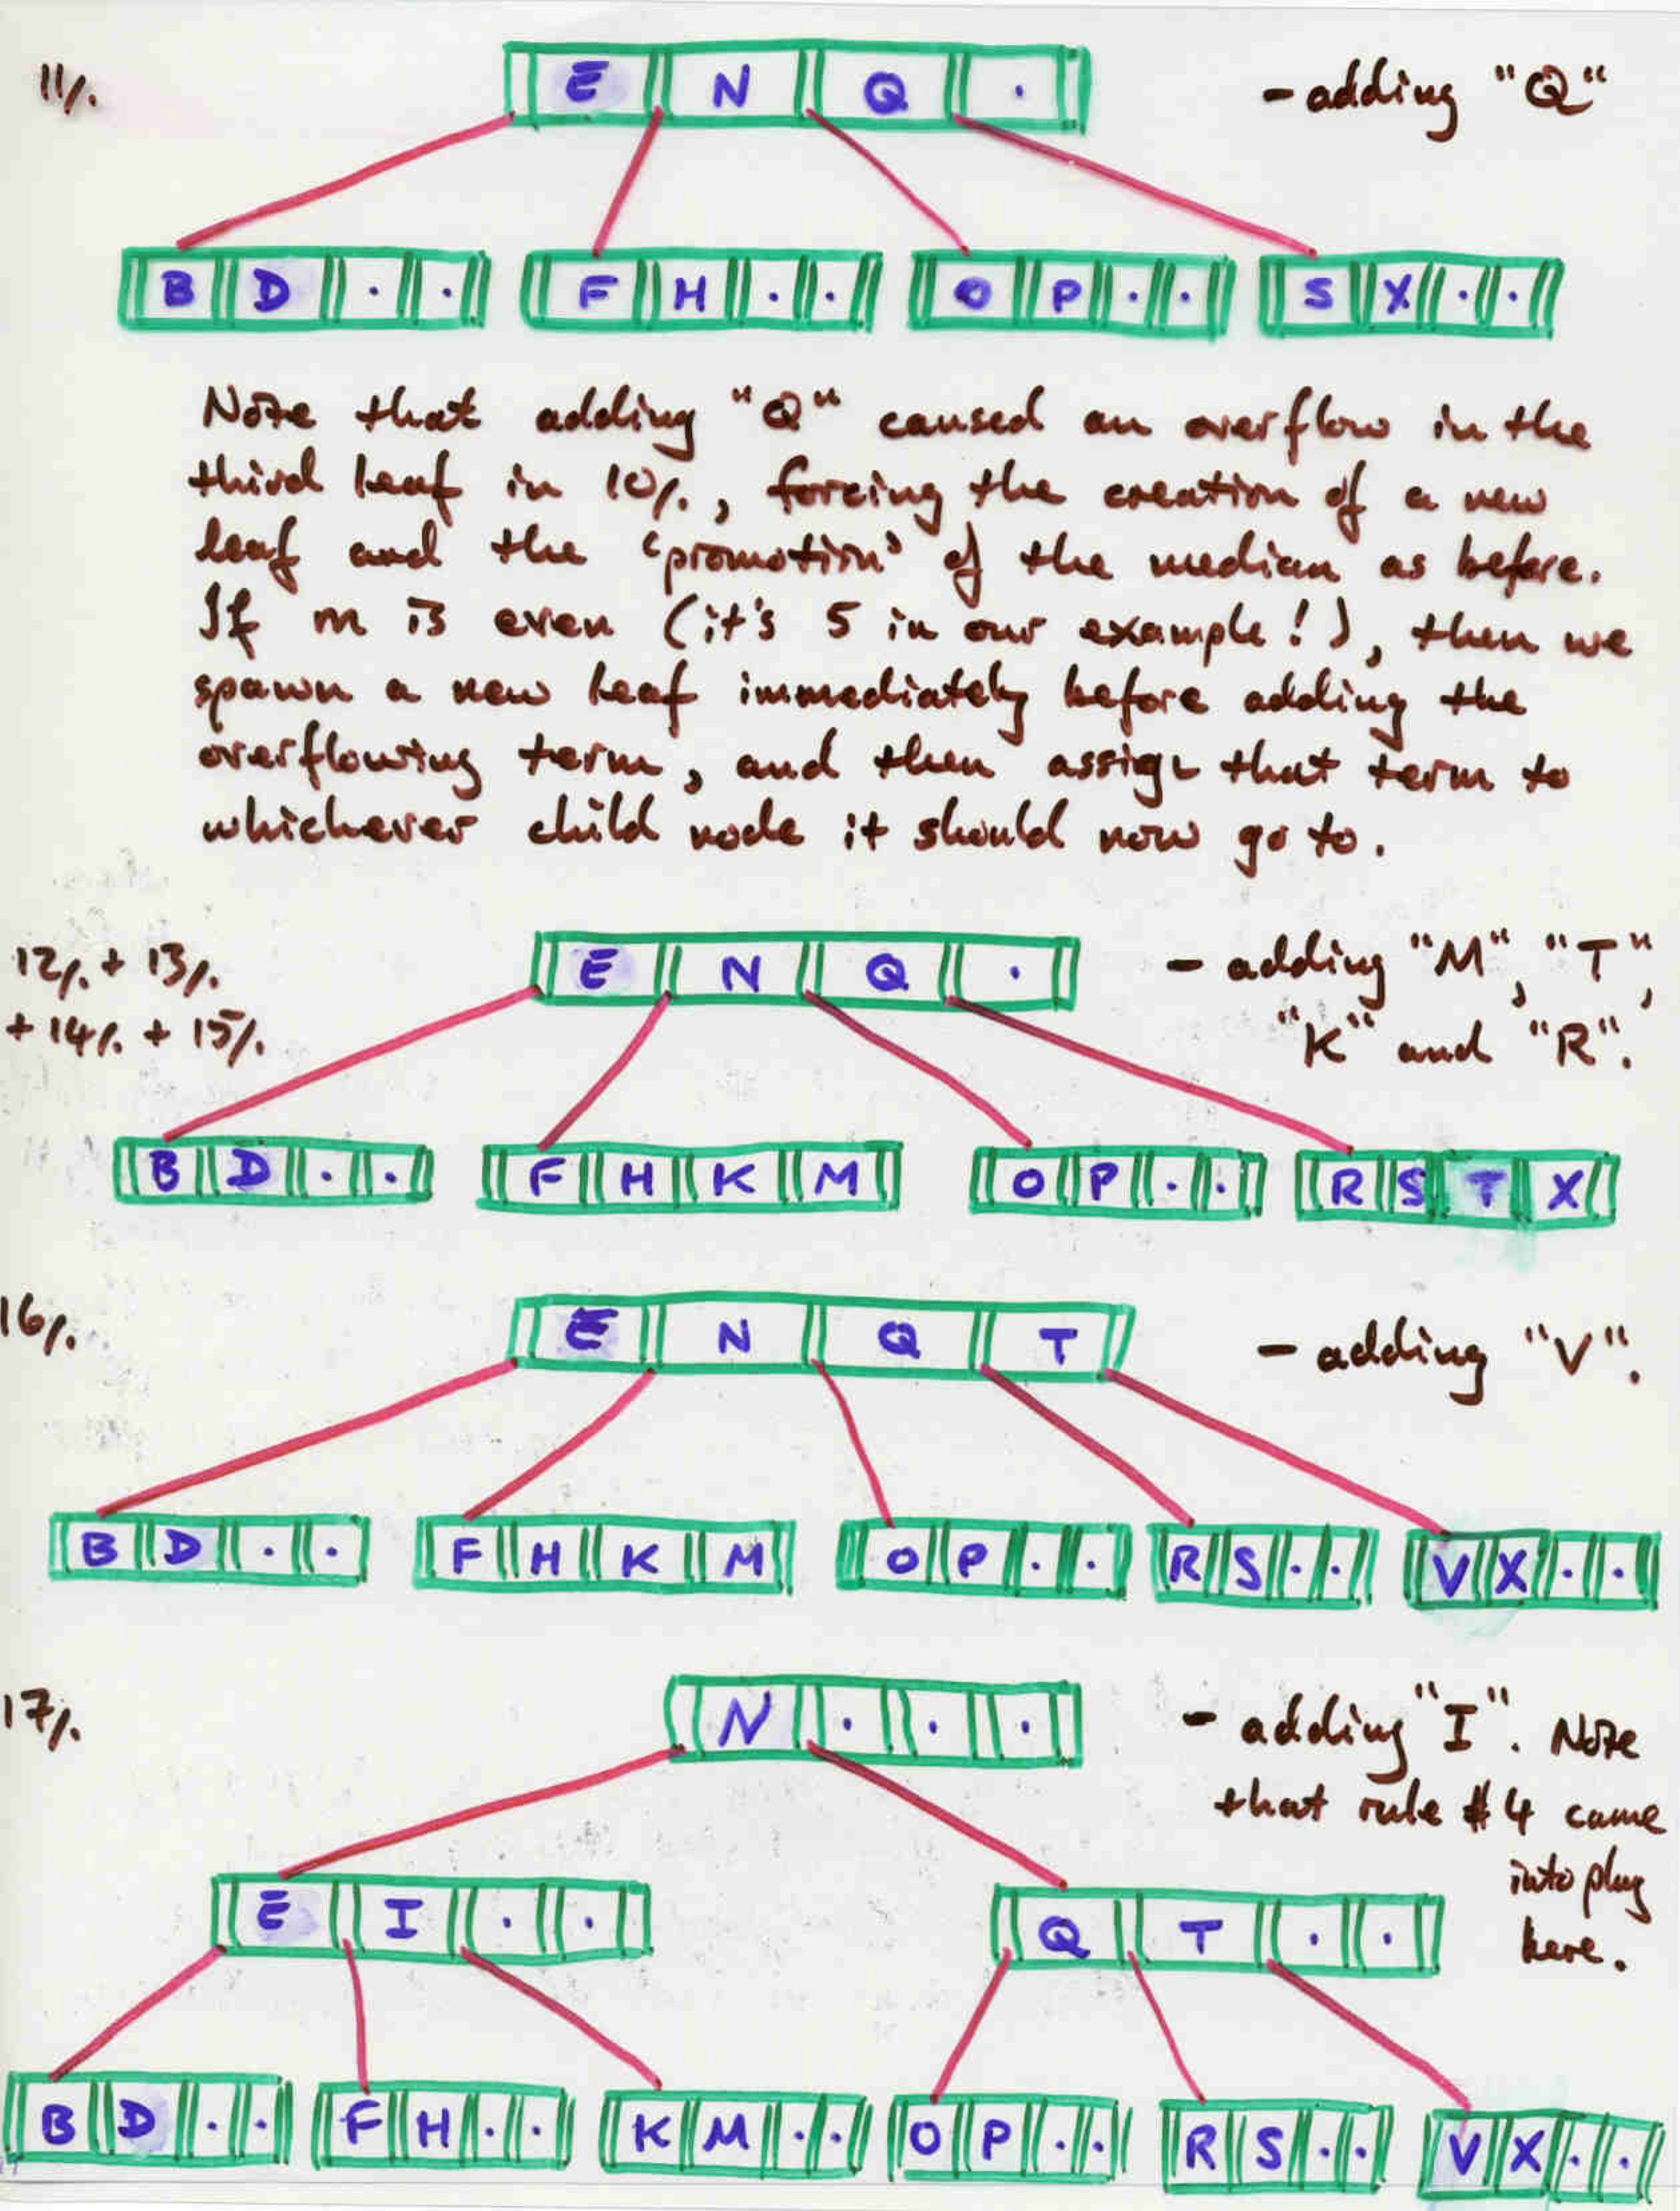 11/.
E N Q .
- adding "Q"
B D . .
F H . .
O P . .
S X . .
Note that adding "Q" caused an overflow in the
third leaf in 10/., forcing the creation of a new
leaf and the 'promotion' of the median as before.
If m is even (it's 5 in our example!), then we
spawn a new leaf immediately before adding the
overflowing term, and then assign that term to
whichever child node it should now go to.
12/. + 13/.
+ 14/. + 15/.
E N Q .
- adding "M", "T",
"K" and "R".
B D . .
F H K M
O P . .
R S T X
16/.
E N Q T
- adding "V".
B D . .
F H K M
O P . .
R S . .
V X . .
17/.
N . . .
- adding "I". Note
that rule #4 came
into play
here.
E I . .
Q T . .
B D . .
F H . .
K M . .
O P . .
R S . .
V X . .